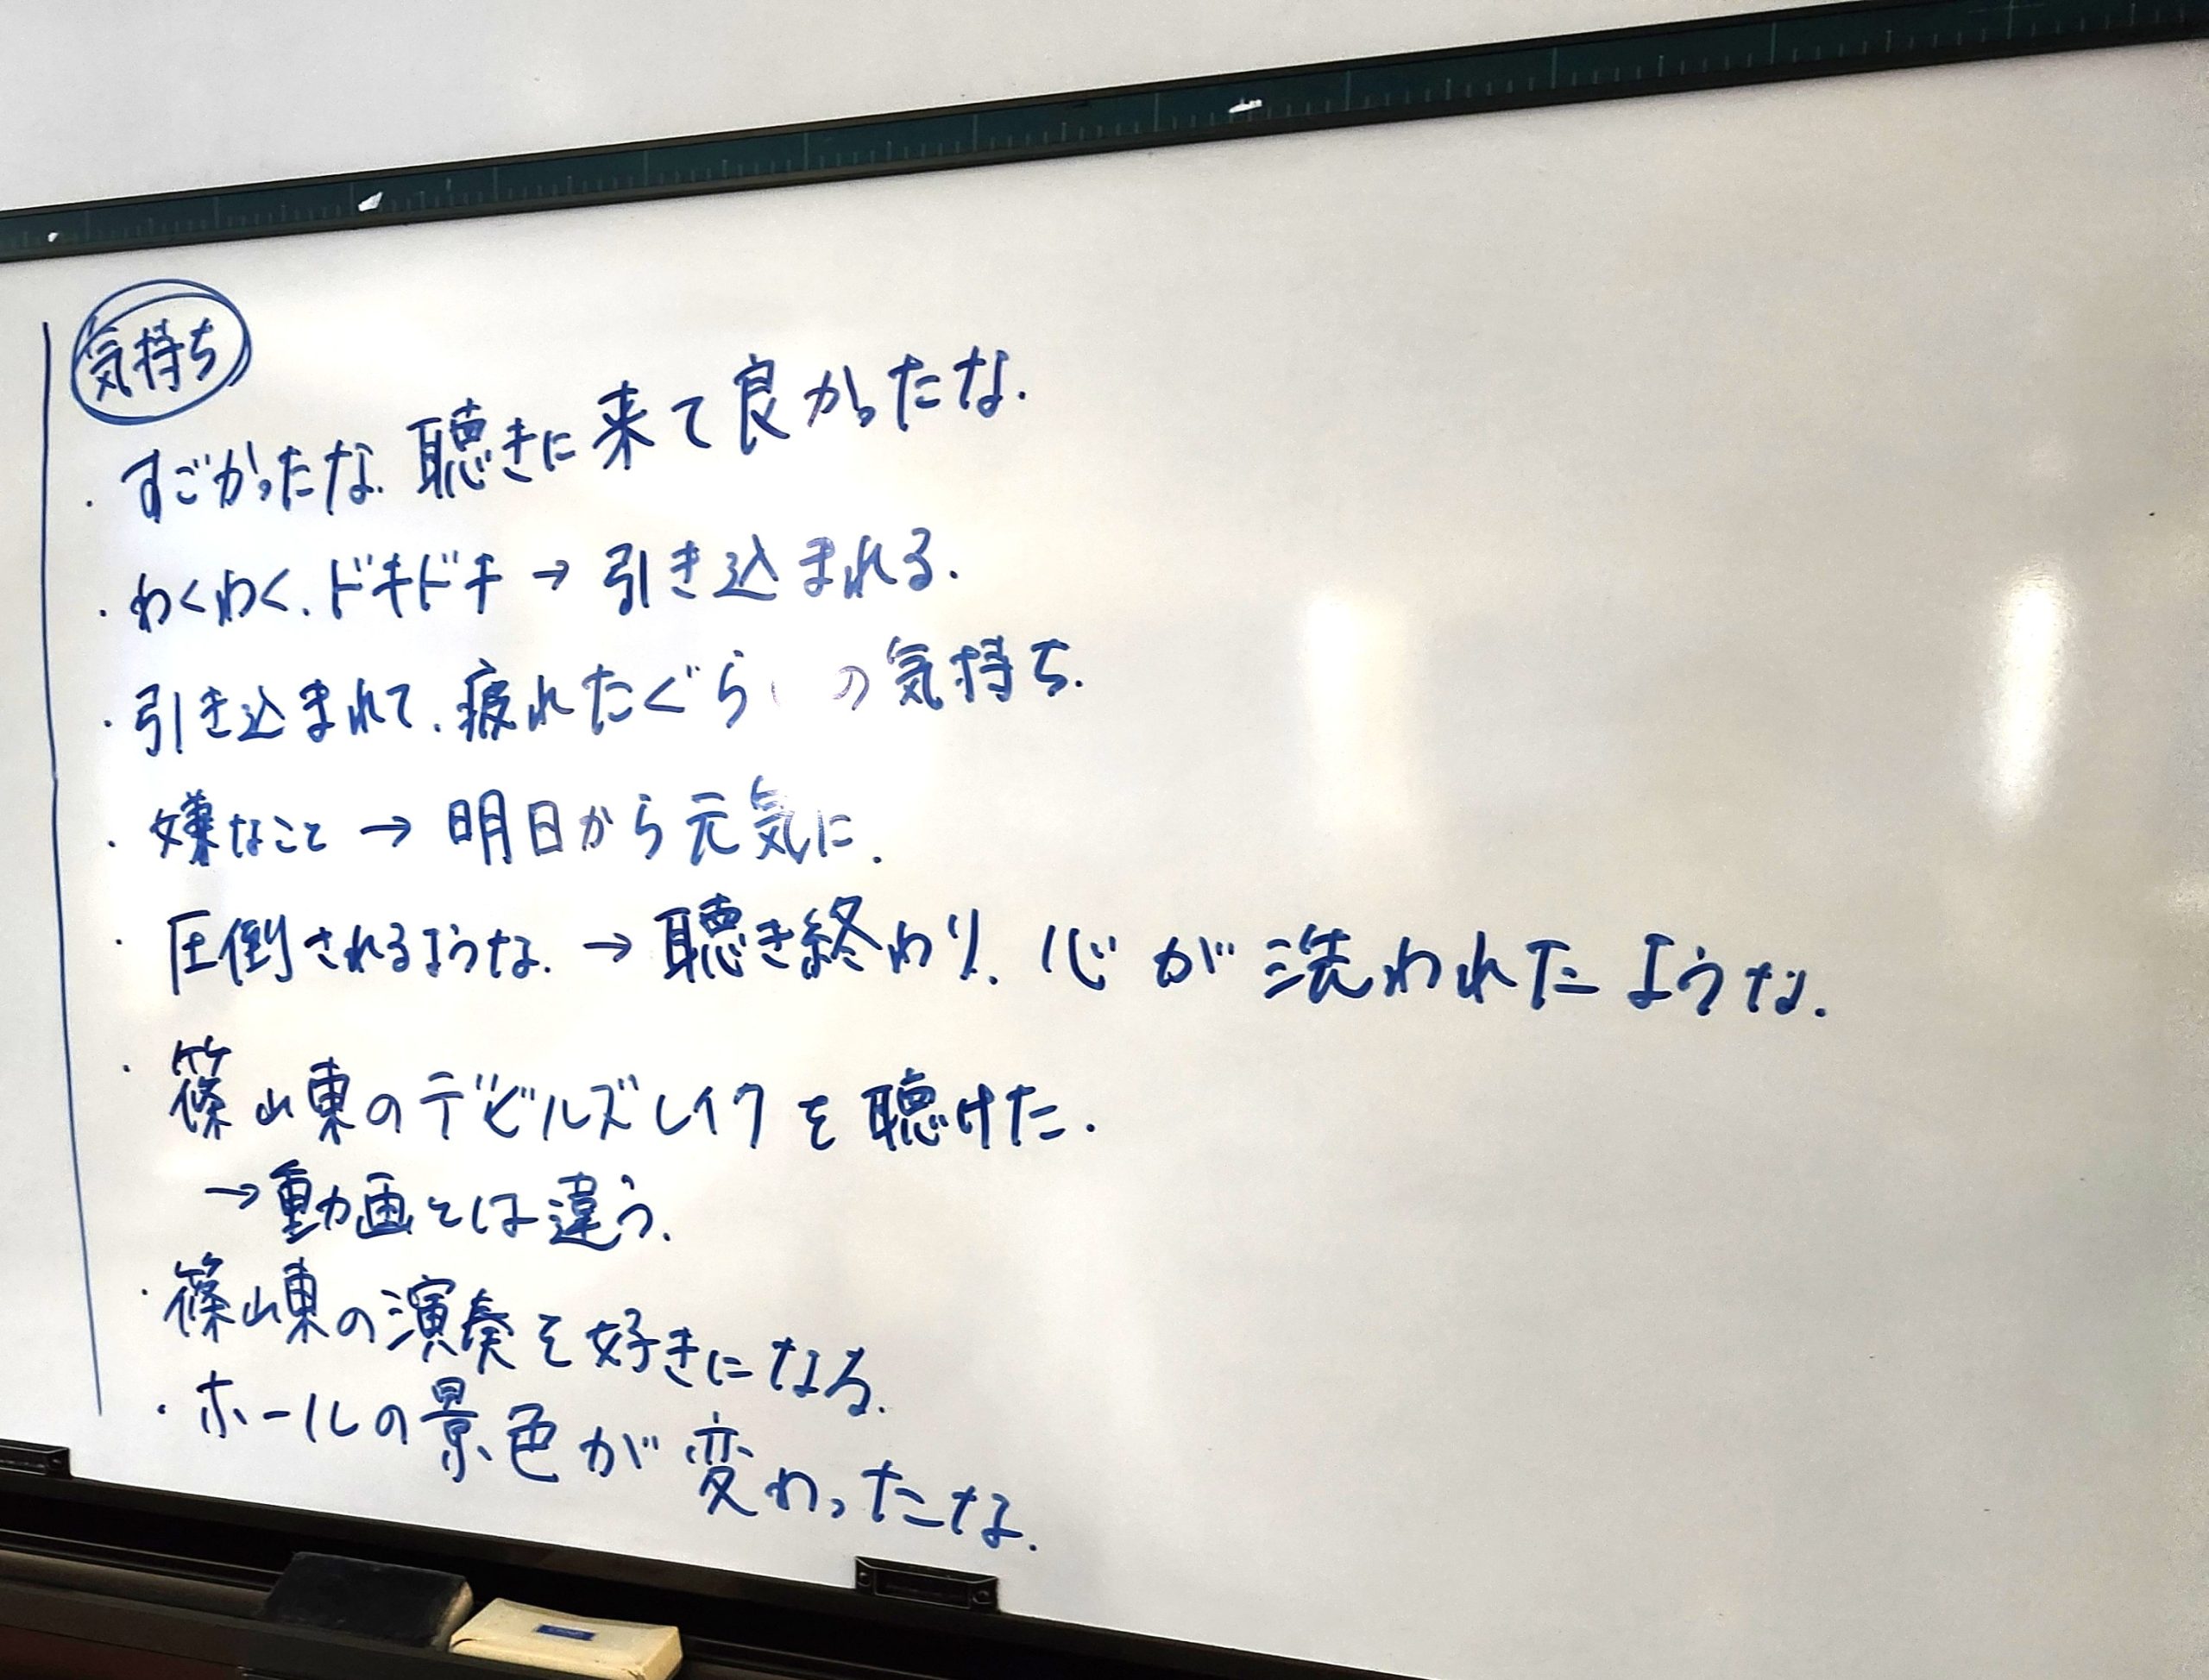 気持ち
・すごかったな.聴きに来て良かったな.
・わくわく.ドキドキ→引き込まれる.
・引き込まれて.疲れたぐらいの気持ち.
・嫌なこと→明日から元気に.
・圧倒されるような.→聴き終わり.心が洗われたような.
・篠山東のデビルズレイクを聴けた.
→動画とは違う.
・篠山東の演奏を好きになる.
・ホールの景色が変わったな.